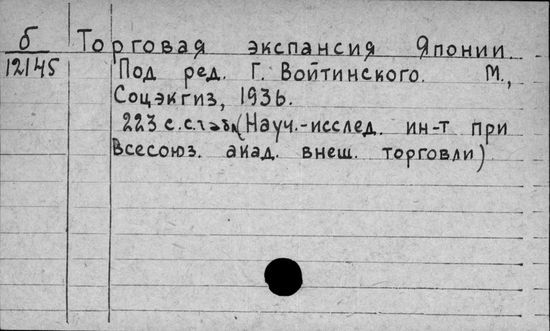 б Торговая экспансия Японии.
12145 Под ред. Г. Войтинского. М.,
Соцэкгиз, 1936.
223 с. с табл. (Науч.-исслед. ин-т при
Всесоюз. акад. внеш. торговли)